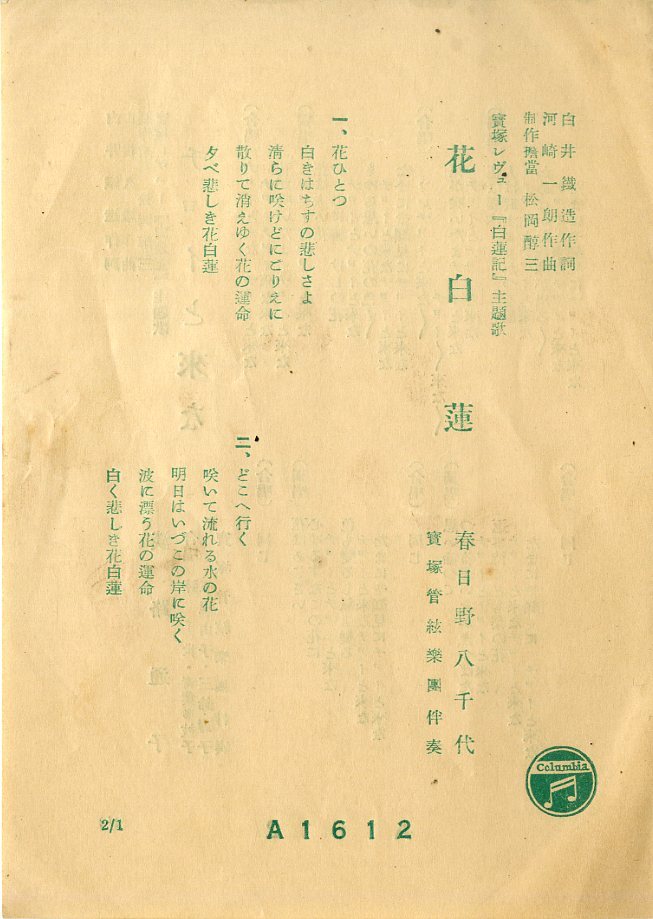 白井鐵造作詞
河崎一朗作曲
制作擔當 松岡醇三
寳塚レヴュー『白蓮記』主題歌
花白蓮
春日野八千代
寳塚管絃樂團伴奏
一、花ひとつ
白きはちすの悲しさよ
清らに咲けどにごりえに
散りて消えゆく花の運命
夕べ悲しき花白蓮
二、どこへ行く
咲いて流れる水の花
明日はいづこの岸に咲く
波に漂う花の運命
白く悲しき花白蓮
Columbia
2/1
A1612